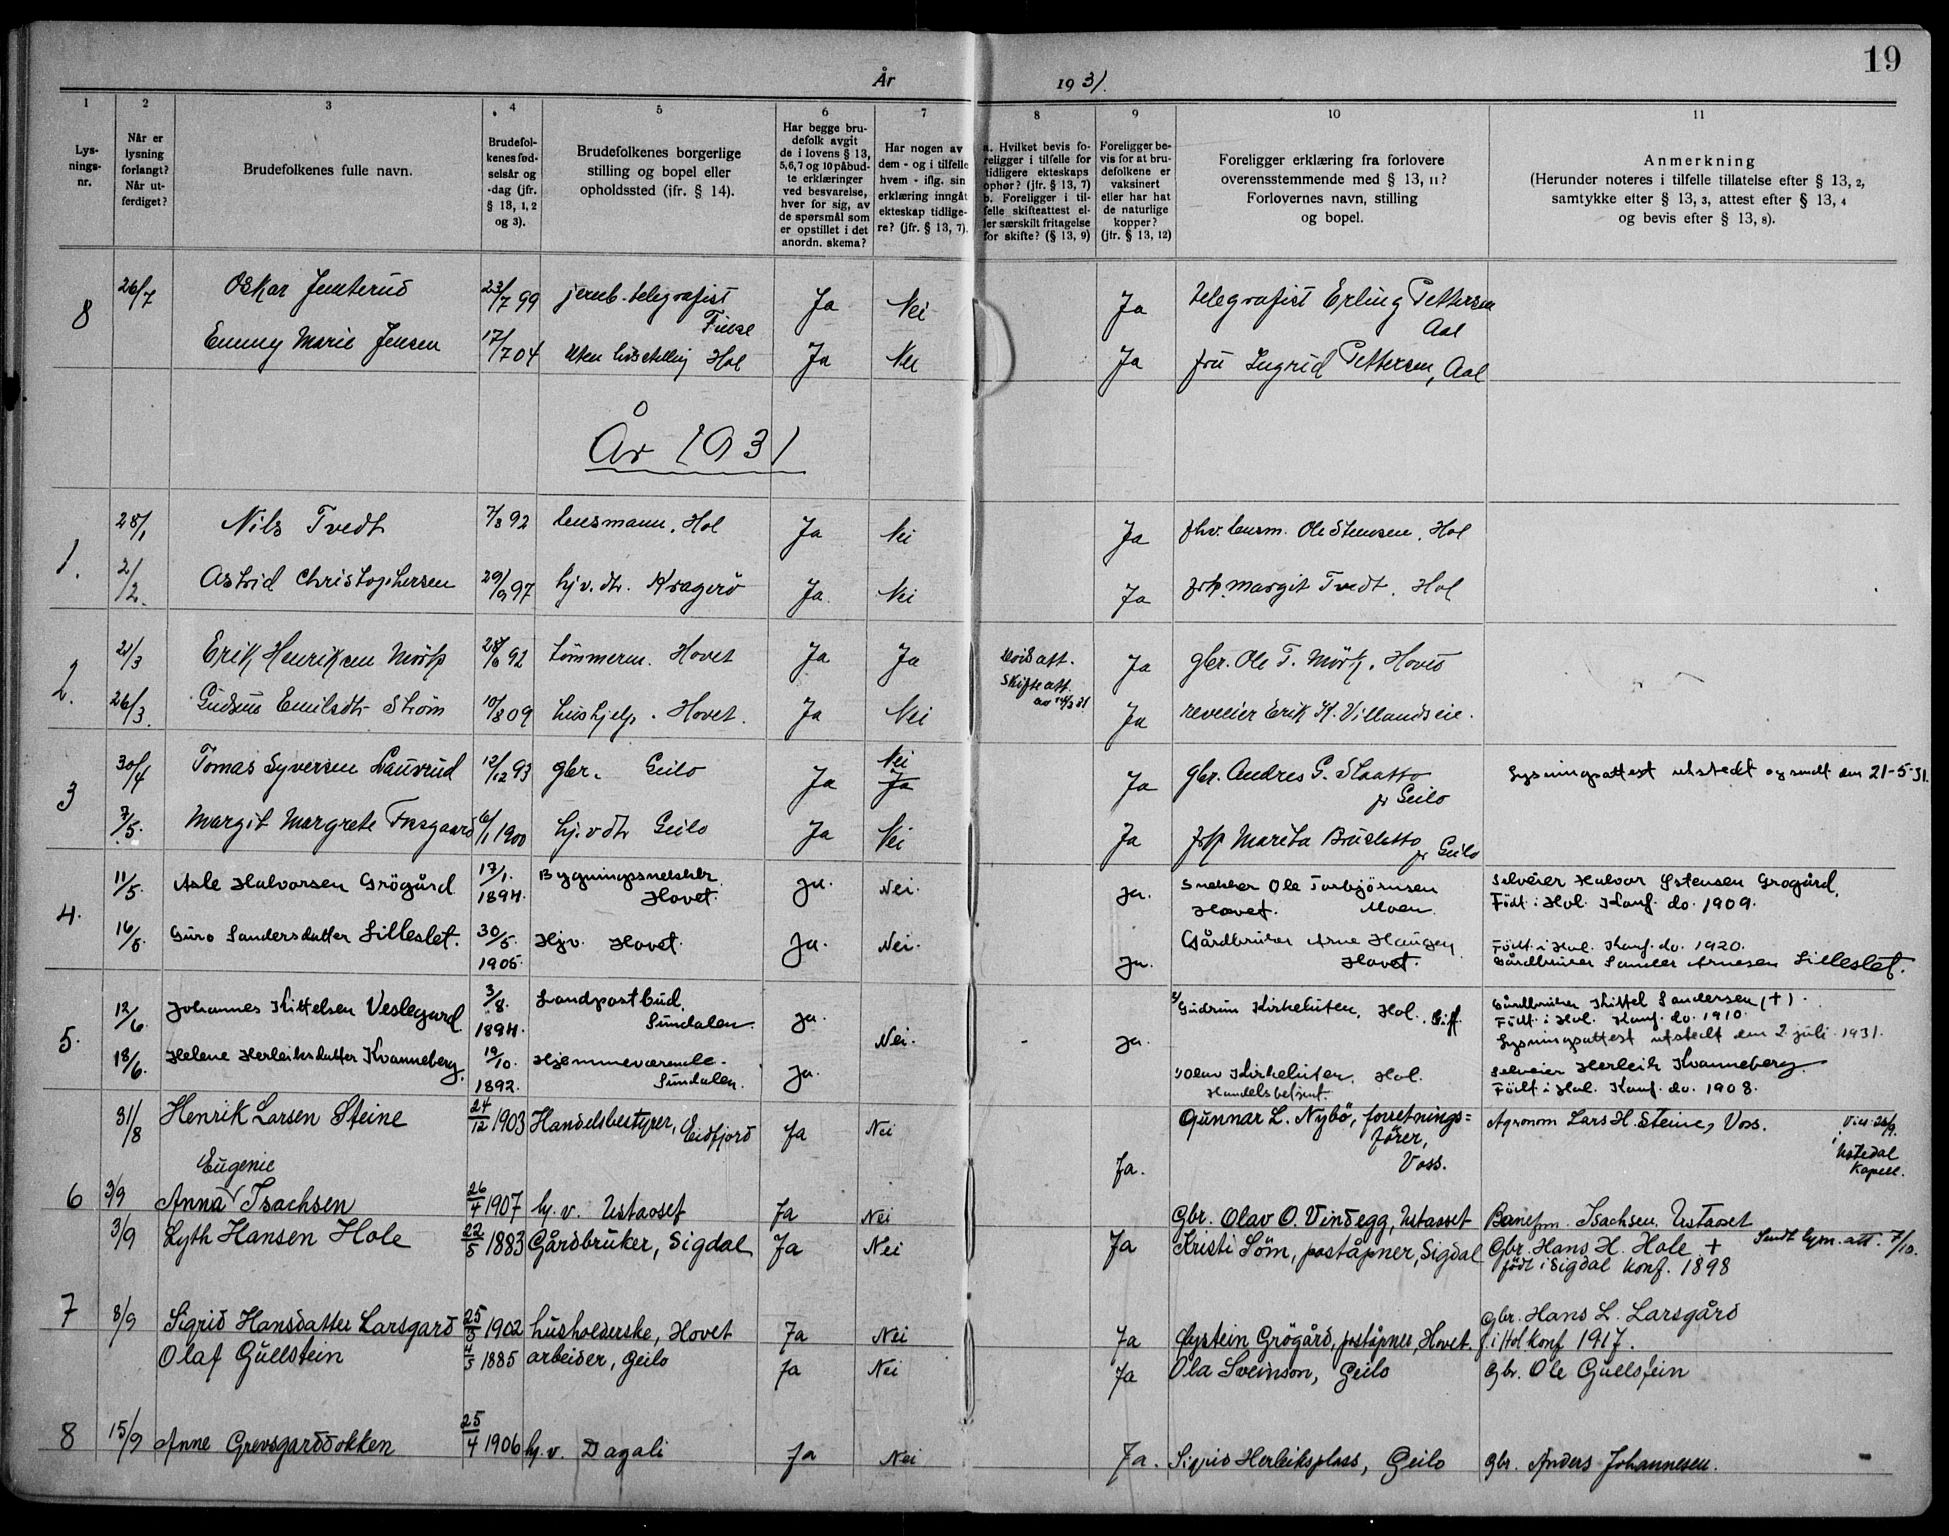 19
År 1931.
1 2 3 4 5 6 7 8 9 10 11
Lys-
nings-
nr.
Når er
lysning
forlangt?
Når ut-
ferdiget?
Brudefolkenes fulle navn.
Brudefol-
kenes fød-
selsår og
-dag (jfr.
§ 13, 1, 2
og 3).
Brudefolkenes borgerlige
stilling og bopel eller
opholdssted (jfr. § 14).
Har begge bru-
defolk avgit
de i lovens § 13,
5,6,7 og 10 påbud-
te erklæringer
ved besvarelse,
hver for sig, av
de spørsmål som
er opstillet i det
anordn. skema?
Har nogen av
dem - og i tilfelle
hvem - iflg. sin
erklæring inngåt
ekteskap tidlige-
re? (jfr. § 13, 7).
a. Hvilket bevis fo-
religger i tilfelle for
tidligere ekteskaps
ophør? (jfr. § 13, 7)
b. Foreligger i til-
felle skifteattest el-
ler særskilt fritagelse
for skifte? (§ 13, 9)
Foreligger be-
vis for at bru-
defolkene er
vaksinert
eller har hat
de naturlige
kopper?
(jfr. § 13, 12)
Foreligger erklæring fra forlovere
overensstemmende med § 13, 11?
Forlovernes navn, stilling
og bopel.
Anmerkning
(Herunder noteres i tilfelle tillatelse efter § 13, 2,
samtykke efter § 13, 3, attest efter § 13, 4
og bevis efter § 13, 8).
8 26/7 Oskar Jemterud 23/7 99 jernb. telegrafist Ja Nei Ja telegrafist Erling Pettersen
Finse Aal
Emmy Marie Jensen 17/7 04 uten livsstilling Hol Ja Nei Ja fru Ingrid Pettersen, Aal
År 1931
1. 28/1 Nils Tvedt 7/3 92 lensmann, Hol Ja Nei Ja fhv. lensm. Ole Stensen, Hol
2/2. Astrid Christophersen 29/9 97 hjv. dtr. Kragerö Ja Nei Ja frk. Margit Tvedt, Hol
2. 21/3 Erik Henriksen Mörk 92 tömmerm. Hovet Ja Ja Ja gbr. Ole T. Mörk, Hovet
Skifte att.
26/3. Gudrun Emilsdtr Ström 10/8 09 hushjelp. Hovet. Ja Nei Ja reveier Erik K. Villandseie.
3 30/4 Tomas Syversen Laurud 12/12 93 gbr. Geilo Ja Nei Ja Ja gbr. Andres G. Slaatto Lysningsattest utstedt og sendt den 21-5-31.
pr Geilo
7/5. Margit Margrete Frisgaard 6/1 1900 hj.v dtr Geilo Ja Nei Ja frk Marita Brusletto
pr Geilo
4. 11/5. Asle Halvorsen Grögård 17/1. 1894. Bygningssnekker Hovet. Ja. Nei. Ja. Snekker Ole Torbjörnsen Selveier Halvor Ystensen Grogård,
Hovet. Moen. Født i Hol. Konf. do. 1909.
16/5. Guro Sandersdatter Lilleslet. 30/5. 1905. Hjv. Hovet. Ja. Nei. Ja. Gårdbruker Arne Haugen Født i Hol. Konf. do. 1920.
Hovet. Gårdbruker Sander Arnesen Lilleslet.
5. 12/6. Johannes Kittelsen Veslegard 3/8. 1894. Landpostbud Sundalen. Ja. Nei. Ja. Gudrun Kirkeluten, Hol. Gift Gårdbruker Kittel Sandersen (+).
Født i Hol. Konf. do. 1910.
Lysningsattest utstedt den 2. juli 1931.
18/6. Helene Herleiksdatter Kvanneberg. 19/10. 1892. Hjemmeværende Sundalen. Ja. Olav Kirkeluten, Hol. Selveier Herleik Kvanneberg
Handelsbetjent. Født i Hol. Konf. do. 1908.
31/8 Henrik Larsen Steine 24/12 1903 Handelsbestyrer, Eidfjord Ja Nei Ja. Gunnar L. Nybö, forretnings= Agronom Lars H. Steine, Voss.
förer,
Voss.
i
Ustedal
Kapell.
Eugenie
6 3/9 Anna Isachsen 26/4 1907 hj. v. Ustaoset Ja Nei Gbr. Olav O. Vindegg, Ustaoset Banefm. Isachsen, Ustaoset
3/9 Lyth Hansen Hole 22/5 1883 Gårdbruker, Sigdal Ja Nei Ja Kristi Söm, poståpner, Sigdal Gbr. Hans H. Hole + Sendt lysn. att. 7/10.
født i Sigdal konf. 1898
7 8/9 Sigrid Hansdatter Larsgard 25/5 1902 husholderske, Hovet Ja Nei Ja Øystein Grögård, poståpner, Hovet. Gbr. Hans L. Larsgård
f. i Hol konf 1917.
Olaf Gullstein 4/5 1885 arbeider, Geilo Ja Nei Ja Ola Sveinson, Geilo Gbr. Ole Gullstein
8 15/9 Anne Grevsgarddokken 25/4 1906 hj. v. Dagali Ja Nei Ja. Sigrid Herleiksplass, Geilo Gbr. Anders Johannesen.